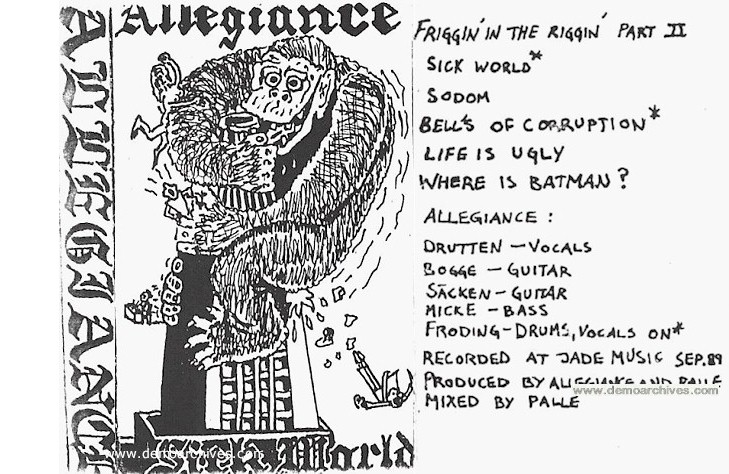 ALLEGIANCE
Allegiance
Sick World
www.demoarchives.com
FRIGGIN' IN THE RIGGIN' PART II
SICK WORLD*
SODOM
BELL'S OF CORRUPTION*
LIFE IS UGLY
WHERE IS BATMAN?
ALLEGIANCE:
DRUTTEN - VOCALS
BOGGE - GUITAR
SÄCKEN - GUITAR
MICKE - BASS
FRODING - DRUMS, VOCALS ON*
RECORDED AT JADE MUSIC SEP. 89
PRODUCED BY ALLEGIANCE AND PALLE
www.demoarchives.com
MIXED BY PALLE